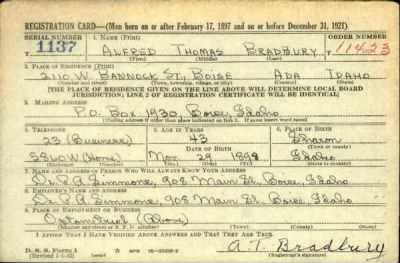 REGISTRATION CARD—(Men born on or after February 17, 1897 and on or before December 31, 1921)
SERIAL NUMBER 1. NAME (Print) ORDER NUMBER
1137 ALFRED THOMAS BRADBURY 11423
(First) (Middle) (Last)
2. PLACE OF RESIDENCE (Print)
2110 W. BANNOCK ST. BOISE ADA IDAHO
(Number and street) (Town, township, village, or city) (County) (State)
[THE PLACE OF RESIDENCE GIVEN ON THE LINE ABOVE WILL DETERMINE LOCAL BOARD
JURISDICTION; LINE 2 OF REGISTRATION CERTIFICATE WILL BE IDENTICAL]
3. MAILING ADDRESS
P.O. Box 1930, Boise, Idaho
[Mailing address if other than place indicated on line 2. If same insert word same]
4. TELEPHONE 5. AGE IN YEARS 6. PLACE OF BIRTH
33 (Business) 43 Sharon
DATE OF BIRTH (Town or county)
5860W (Home) Nov. 29 1898 Idaho
7. NAME AND ADDRESS OF PERSON WHO WILL ALWAYS KNOW YOUR ADDRESS
Dr. P. A. Simmons, 908 Main St., Boise, Idaho
8. EMPLOYER'S NAME AND ADDRESS
Dr. P. A. Simmons, 908 Main St., Boise, Idaho
9. PLACE OF EMPLOYMENT OR BUSINESS
Optometrist (Above)
(Number and street or R. F. D. number) (Town) (County) (State)
I AFFIRM THAT I HAVE VERIFIED ABOVE ANSWERS AND THAT THEY ARE TRUE.
D. S. S. Form 1
(Revised 1-1-42) A. T. Bradbury